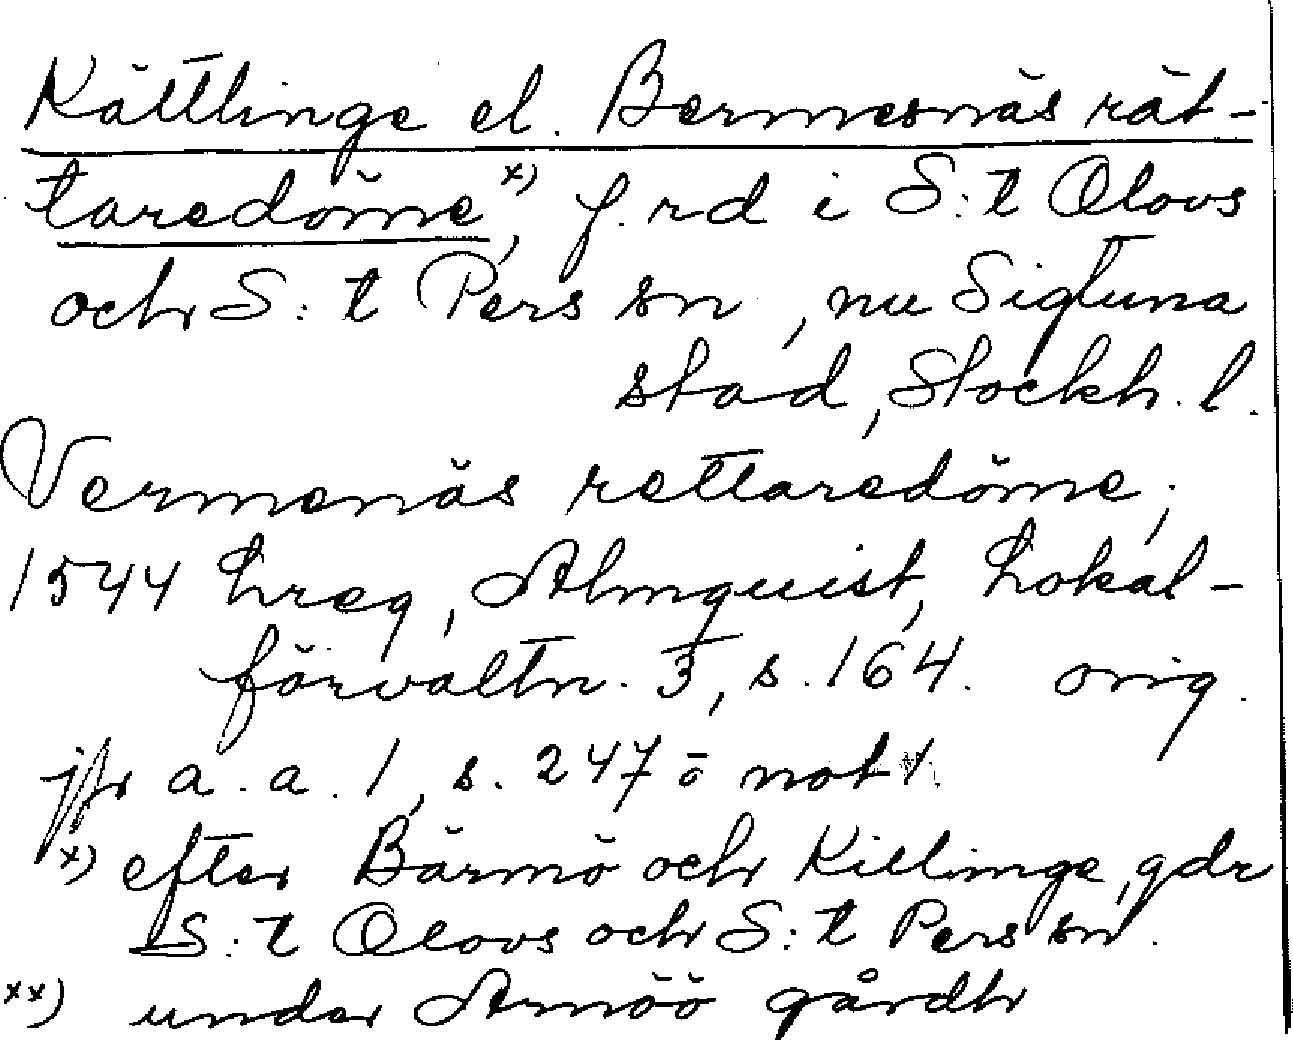 Kättlinge el. Bermesnäs rät-
taredöme x), f.rd i S:t Olovs
och S:t Pers sn, nu Sigtuna
stad, Stockh. l.
Vermenäs rettaredöme;
1544 hreg, Almquist, Lokal-
förvaltn. 3, s. 164. orig.
jfr a. a. 1, s. 247 o not
x) efter Bärmö och Killinge, gdr
S:t Olovs och S:t Pers sn.
xx) under Arnöö gårdh